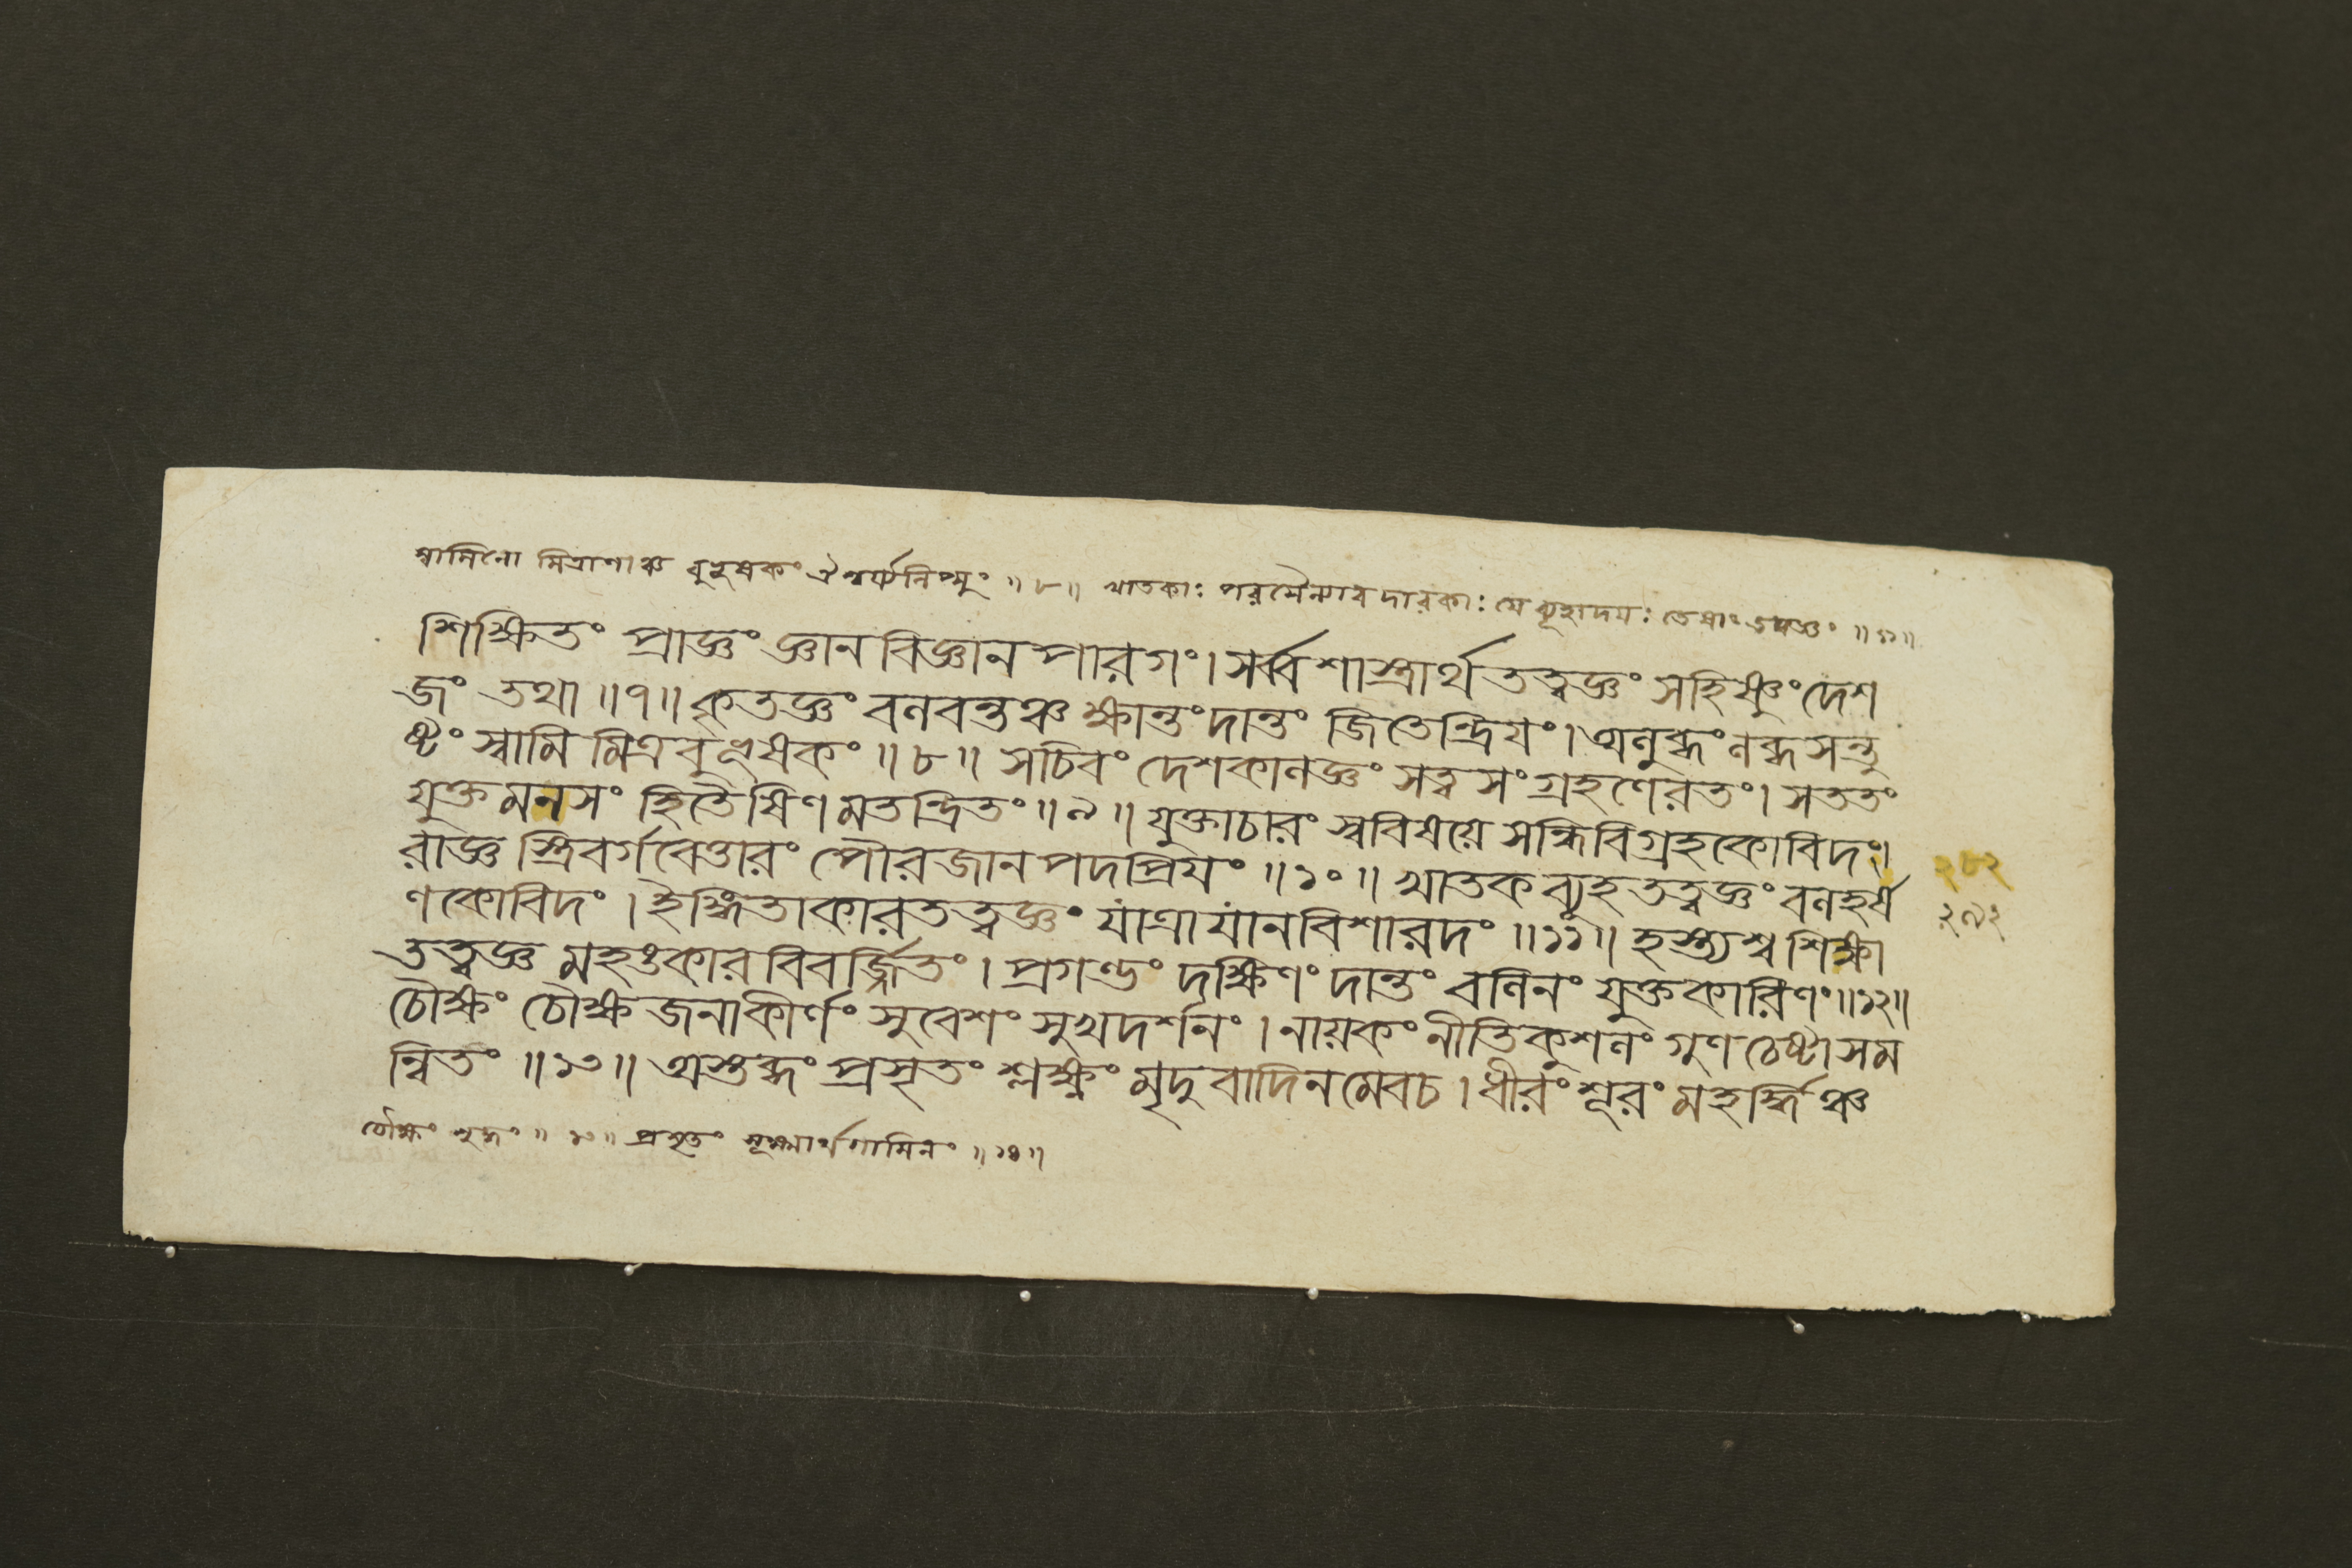 স্বামিনো মিত্রাণাঞ্চ বুভূষকং ঐশ্বর্য্যলিপ্সুং ॥ ৮ ॥ খাতকাঃ পরসৈন্যাবদারকাঃ যে ব্যূহাদয়ঃ তেষাং তত্ত্বজ্ঞং ॥ ১১ ॥
শিক্ষিতং প্রাজ্ঞং জ্ঞানবিজ্ঞানপারগং। সর্ব্বশাস্ত্রার্থতত্ত্বজ্ঞং সহিষ্ণুং দেশ
জং তথা ॥ ৭ ॥ কৃতজ্ঞং বলবন্তঞ্চ ক্ষান্তং দান্তং জিতেন্দ্রিযং। অলুব্ধং লব্ধসন্তু
ষ্টং স্বামিমিত্রবুভূষকং ॥ ৮ ॥ সচিবং দেশকালজ্ঞং সত্ত্বসংগ্রহণেরতং। সততং
যুক্তমনসং হিতৈষিণমতন্দ্রিতং ॥ ৯ ॥ যুক্তাচারং স্ববিষয়ে সন্ধিবিগ্রহকোবিদং।
রাজ্ঞস্ত্রিবর্গবেত্তারং পৌরজানপদপ্রিযং ॥ ১০ ॥ খাতকব্যূহতত্ত্বজ্ঞং বলহর্ষ
২৮২
ণকোবিদং। ইঙ্গিতাকারতত্ত্বজ্ঞং যাত্রাযানবিশারদং ॥ ১১ ॥ হস্ত্যশ্বশিক্ষা
২৯২
তত্ত্বজ্ঞমহঙ্কারবিবর্জ্জিতং। প্রগল্ভং দক্ষিণং দান্তং বলিনং যুক্তকারিণং ॥ ১২ ॥
চৌক্ষং চৌক্ষজনাকীর্ণং সুবেশং সুখদর্শনং। নায়কং নীতিকুশলং গুণচেষ্টাসম
ন্বিতং ॥ ১৩ ॥ অস্তব্ধং প্রসৃতং শ্লক্ষ্ণং মৃদুবাদিনমেবচ। ধীরং শূরং মহর্দ্ধিঞ্চ
চৌক্ষং শুদ্ধং ॥ ১৩ ॥ প্রসৃতং সূক্ষ্মার্থগামিনং ॥ ১৪ ॥